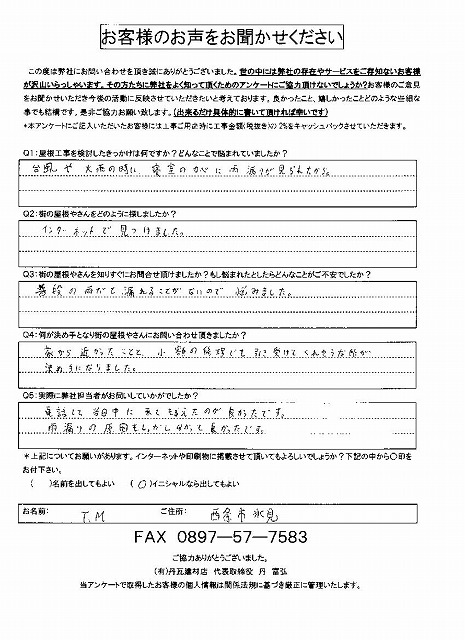 お客様のお声をお聞かせください
この度は弊社にお問い合わせを頂き誠にありがとうございました。世の中には弊社の存在やサービスをご存知ないお客様
が沢山いらっしゃいます。その方たちに弊社をよく知って頂くためのアンケートにご協力頂けないでしょうか?お客様のご意見
をお聞かせいただき今後の活動に反映させていただきたいと考えております。良かったこと、嬉しかったことどのような些細な
事でも結構です。是非ご協力お願い致します。(出来るだけ具体的に書いて頂ければ幸いです)
*本アンケートにご記入いただいたお客様には工事ご用立時に工事金額(税抜き)の2%をキャッシュバックさせていただきます。
Q1:屋根工事を検討したきっかけは何ですか?どんなことで悩まれていましたか?
台風や大雨の時に寝室のカベに雨漏りが見られたから。
Q2:街の屋根やさんをどのように探しましたか?
インターネットで見つけました。
Q3:街の屋根やさんを知りすぐにお問合せ頂けましたか?もし悩まれたとしたらどんなことがご不安でしたか?
普段の雨だと漏れることがないので悩みました。
Q4:何が決め手となり街の屋根やさんにお問い合わせ頂きましたか?
家から近かったことと、小額の修理でも引き受けてくれそうな所が
決め手になりました。
Q5:実際に弊社担当者がお伺いしていかがでしたか?
電話して当日中に来てもらえたのが良かったです。
雨漏りの原因もしっかり分かって良かったです。
*上記についてお願いがあります。インターネットや印刷物に掲載させて頂いてもよろしいでしょうか?下記の中から○印を
お付下さい。
( )名前を出してもよい (○)イニシャルなら出してもよい
お名前: T.M ご住所:西条市氷見
FAX 0897-57-7583
ご協力ありがとうございました。
(有)丹瓦建材店 代表取締役 丹 富弘
当アンケートで取得したお客様の個人情報は関係法規に基づき厳正に管理いたします。